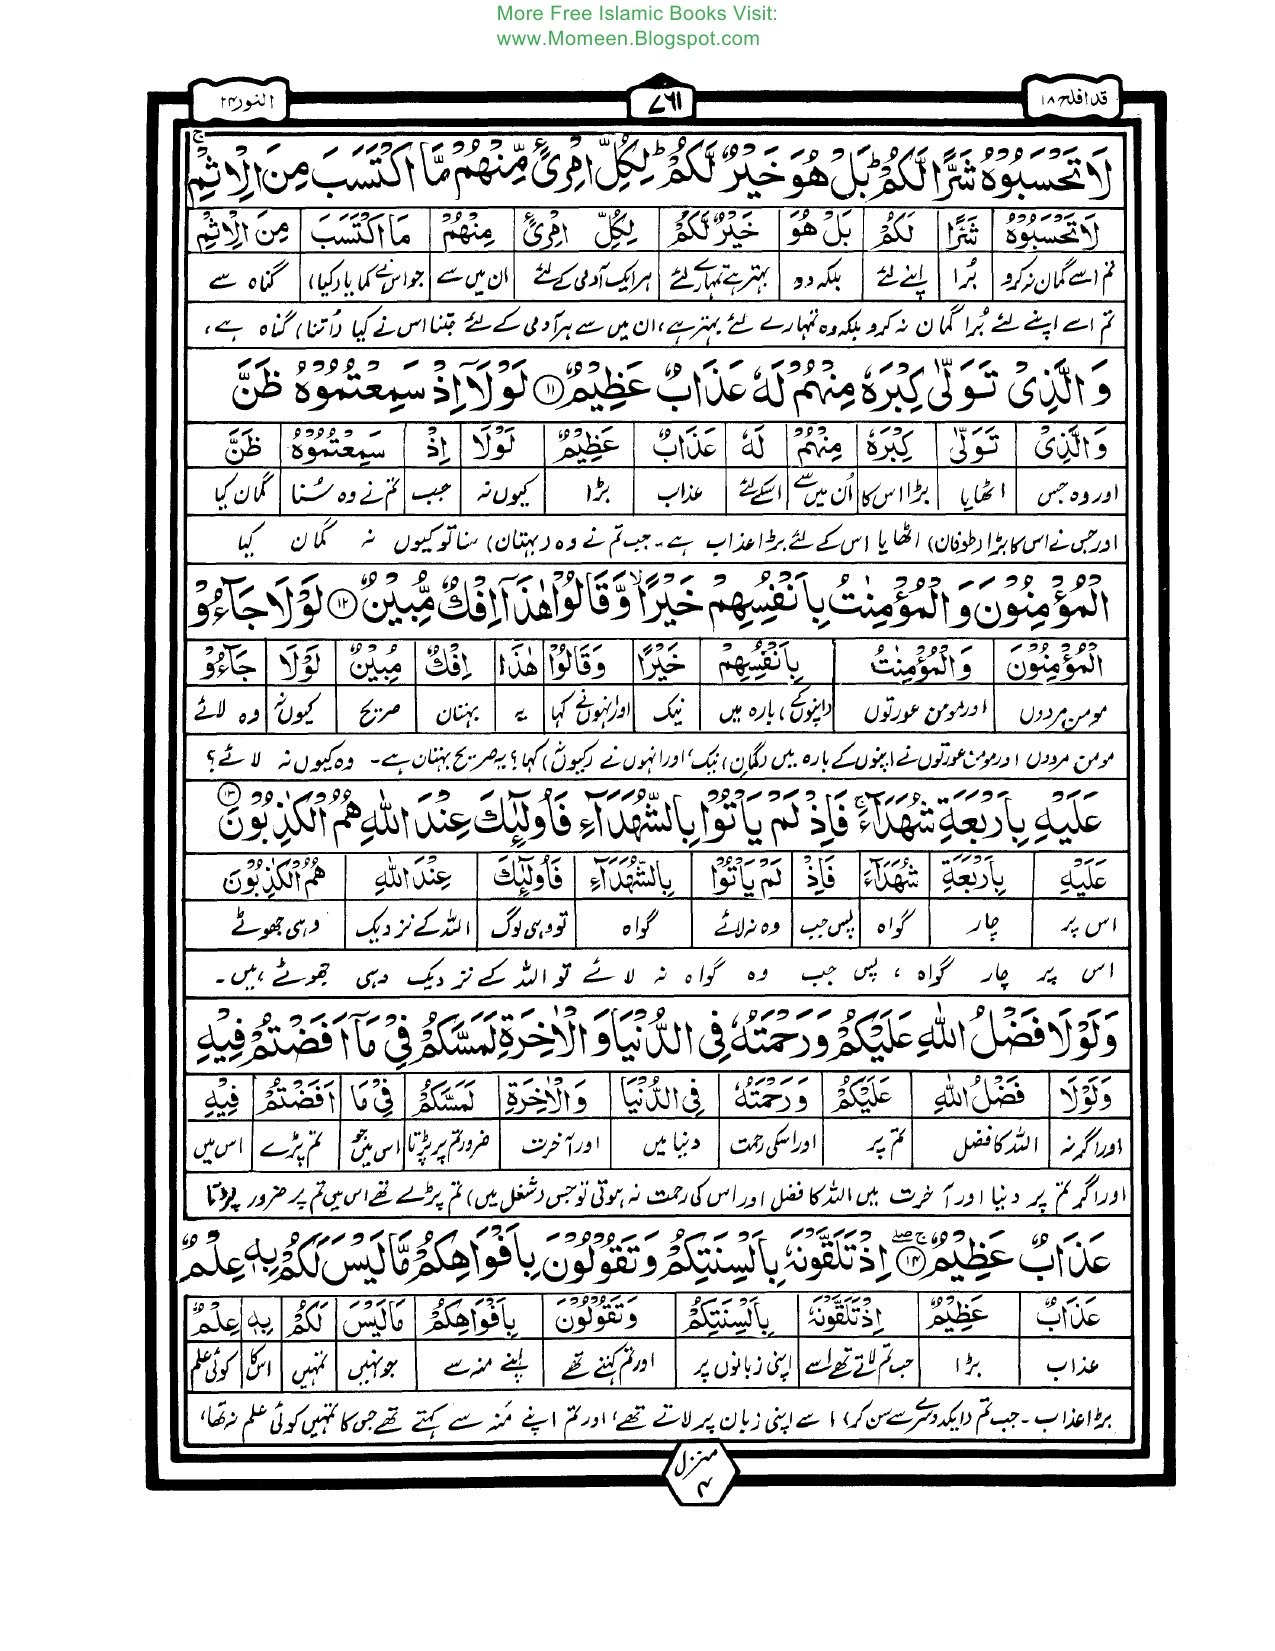 More Free Islamic Books Visit:
www.Momeen.Blogspot.com
قد افلح ۱۸ ۷۶۱ النور ۲۴
لَا تَحْسَبُوْهُ شَرًّا لَّكُمْ ؕ بَلْ هُوَ خَيْرٌ لَّكُمْ ؕ لِكُلِّ امْرِیٍٔ مِّنْهُمْ مَّا اكْتَسَبَ مِنَ الْاِثْمِ ۚ
لَا تَحْسَبُوْهُ شَرًّا لَّكُمْ بَلْ هُوَ خَيْرٌ لَّكُمْ لِكُلِّ امْرِیٍٔ مِنْهُمْ مَا اكْتَسَبَ مِنَ الْاِثْمِ
تم اسے گمان نہ کرو بُرا اپنے لئے بلکہ وہ بہتر ہے تمہارے لئے ہر ایک آدمی کے لئے ان میں سے جو اس نے کمایا (کیا) گناہ سے
تم اسے اپنے لئے بُرا گمان نہ کرو بلکہ وہ تمہارے لئے بہتر ہے، ان میں سے ہر آدمی کے لئے جتنا اس نے کیا (اُتنا) گناہ ہے،
وَ الَّذِیْ تَوَلّٰی كِبْرَهٗ مِنْهُمْ لَهٗ عَذَابٌ عَظِیْمٌ ۝۱۱ لَوْلَاۤ اِذْ سَمِعْتُمُوْهُ ظَنَّ
وَالَّذِیْ تَوَلّٰی كِبْرَهٗ مِنْهُمْ لَهٗ عَذَابٌ عَظِیْمٌ لَوْلَا اِذْ سَمِعْتُمُوْهُ ظَنَّ
اور وہ جس اٹھایا بڑا اس کا اُن میں سے اسکے لئے عذاب بڑا کیوں نہ جب تم نے وہ سُنا گمان کیا
اور جس نے اس کا بڑا (طوفان) اٹھایا اس کے لئے بڑا عذاب ہے۔ جب تم نے وہ (بہتان) سنا تو کیوں نہ گمان کیا
الْمُؤْمِنُوْنَ وَ الْمُؤْمِنٰتُ بِاَنْفُسِهِمْ خَیْرًا ۙ وَّ قَالُوْا هٰذَاۤ اِفْكٌ مُّبِیْنٌ ۝۱۲ لَوْلَا جَآءُوْ
الْمُؤْمِنُوْنَ وَالْمُؤْمِنٰتُ بِاَنْفُسِهِمْ خَیْرًا وَقَالُوْا هٰذَا اِفْكٌ مُبِیْنٌ لَوْلَا جَآءُوْ
مومن مردوں اور مومن عورتوں (اپنوں کے) بارہ میں نیک اور انہوں نے کہا یہ بہتان صریح کیوں نہ وہ لائے
مومن مردوں اور مومن عورتوں نے اپنوں کے بارہ میں (گمان) نیک، اور انہوں نے (کیوں نہ) کہا؟ یہ صریح بہتان ہے۔ وہ کیوں نہ لائے؟
عَلَیْهِ بِاَرْبَعَةِ شُهَدَآءَ ۚ فَاِذْ لَمْ یَاْتُوْا بِالشُّهَدَآءِ فَاُولٰٓئِكَ عِنْدَ اللّٰهِ هُمُ الْكٰذِبُوْنَ ۝۱۳
عَلَیْهِ بِاَرْبَعَةِ شُهَدَآءَ فَاِذْ لَمْ یَاْتُوْا بِالشُّهَدَآءِ فَاُولٰٓئِكَ عِنْدَ اللّٰهِ هُمُ الْكٰذِبُوْنَ
اس پر چار گواہ پس جب وہ نہ لائے گواہ تو وہی لوگ اللہ کے نزدیک وہی جھوٹے
اس پر چار گواہ، پس جب وہ گواہ نہ لائے تو اللہ کے نزدیک وہی جھوٹے ہیں۔
وَ لَوْلَا فَضْلُ اللّٰهِ عَلَیْكُمْ وَ رَحْمَتُهٗ فِی الدُّنْیَا وَ الْاٰخِرَةِ لَمَسَّكُمْ فِیْ مَاۤ اَفَضْتُمْ فِیْهِ
وَلَوْلَا فَضْلُ اللّٰهِ عَلَیْكُمْ وَرَحْمَتُهٗ فِی الدُّنْیَا وَالْاٰخِرَةِ لَمَسَّكُمْ فِیْ مَا اَفَضْتُمْ فِیْهِ
اور اگر نہ اللہ کا فضل تم پر اور اسکی رحمت دنیا میں اور آخرت ضرور تم پر پڑتا اس میں جو تم پڑے اس میں
اور اگر تم پر دنیا اور آخرت میں اللہ کا فضل اور اس کی رحمت نہ ہوتی تو جس (شغل میں) تم پڑے تھے اس میں تم پر ضرور پڑتا
عَذَابٌ عَظِیْمٌ ۝۱۴ اِذْ تَلَقَّوْنَهٗ بِاَلْسِنَتِكُمْ وَ تَقُوْلُوْنَ بِاَفْوَاهِكُمْ مَّا لَیْسَ لَكُمْ بِهٖ عِلْمٌ
عَذَابٌ عَظِیْمٌ اِذْ تَلَقَّوْنَهٗ بِاَلْسِنَتِكُمْ وَتَقُوْلُوْنَ بِاَفْوَاهِكُمْ مَا لَیْسَ لَكُمْ بِهٖ عِلْمٌ
عذاب بڑا جب تم لاتے تھے اسے اپنی زبانوں پر اور تم کہتے تھے اپنے منہ سے جو نہیں تمہیں اس کا کوئی علم
بڑا عذاب۔ جب تم (ایک دوسرے سے سن کر) اسے اپنی زبان پر لاتے تھے، اور تم اپنے مُنہ سے کہتے تھے جس کا تمہیں کوئی علم نہ تھا،
منزل ۴